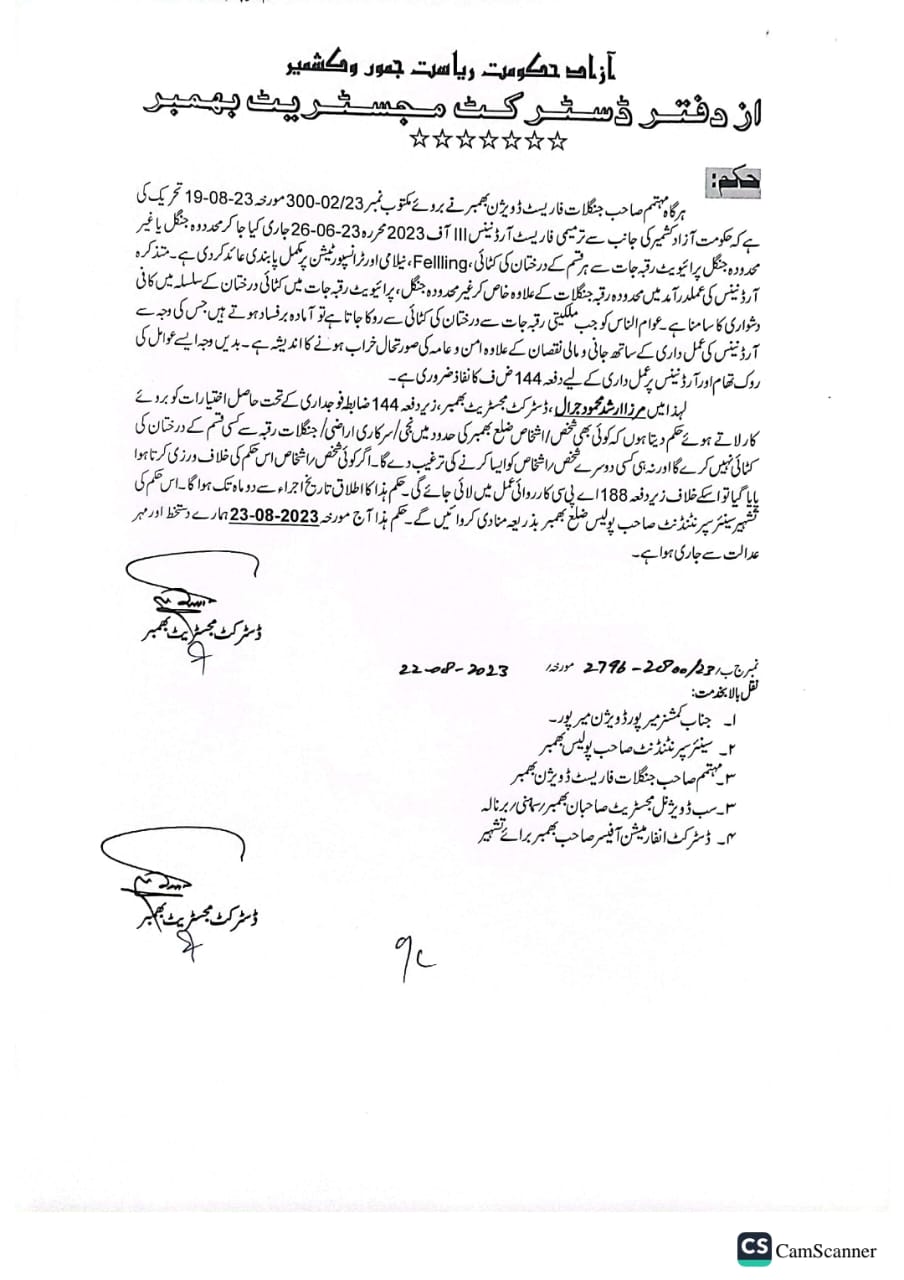 آزاد حکومت ریاست جموں و کشمیر
از دفتر ڈسٹرکٹ مجسٹریٹ بھمبر
☆☆☆☆☆☆☆
حکم:
ہرگاہ مہتمم صاحب جنگلات فاریسٹ ڈویژن بھمبر نے بروئے مکتوب نمبر 300-02/23 مورخہ 23-08-19 تحریک کی
ہے کہ حکومت آزاد کشمیر کی جانب سے ترمیمی فاریسٹ آرڈیننس III آف 2023 محررہ 23-06-26 جاری کیا جا کر محدودہ جنگل یا غیر
محدودہ جنگل پرائیویٹ رقبہ جات سے ہر قسم کے درختان کی کٹائی، Fellling، نیلامی اور ٹرانسپورٹیشن پر مکمل پابندی عائد کر دی ہے۔ متذکرہ
آرڈیننس کی عملدرآمد میں محدودہ رقبہ جنگلات کے علاوہ خاص کر غیر محدودہ جنگل، پرائیویٹ رقبہ جات میں کٹائی درختان کے سلسلہ میں کافی
دشواری کا سامنا ہے۔ عوام الناس کو جب ملکیتی رقبہ جات سے درختان کی کٹائی سے روکا جاتا ہے تو آمادہ بر فساد ہوتے ہیں جس کی وجہ سے
آرڈیننس کی عمل داری کے ساتھ جانی و مالی نقصان کے علاوہ امن و عامہ کی صورتحال خراب ہونے کا اندیشہ ہے۔ بدیں وجہ ایسے عوامل کی
روک تھام اور آرڈیننس پر عمل داری کے لیے دفعہ 144 ض ف کا نفاذ ضروری ہے۔
لہذا میں مرزا ارشد محمود جرال، ڈسٹرکٹ مجسٹریٹ بھمبر، زیر دفعہ 144 ضابطہ فوجداری کے تحت حاصل اختیارات کو بروئے
کار لاتے ہوئے حکم دیتا ہوں کہ کوئی بھی شخص/اشخاص ضلع بھمبر کی حدود میں نجی/سرکاری اراضی/جنگلات رقبہ سے کسی قسم کے درختان کی
کٹائی نہیں کرے گا اور نہ ہی کسی دوسرے شخص/اشخاص کو ایسا کرنے کی ترغیب دے گا۔ اگر کوئی شخص/اشخاص اس حکم کی خلاف ورزی کرتا ہوا
پایا گیا تو اسکے خلاف زیر دفعہ 188 اے پی سی کارروائی عمل میں لائی جائے گی۔ حکم ہذا کا اطلاق تاریخ اجراء سے دو ماہ تک ہوگا۔ اس حکم کی
تشہیر سینئر سپرنٹنڈنٹ صاحب پولیس ضلع بھمبر بذریعہ منادی کروائیں گے۔ حکم ہذا آج مورخہ 23-08-2023 ہمارے دستخط اور مہر
عدالت سے جاری ہوا ہے۔
ڈسٹرکٹ مجسٹریٹ بھمبر
نمبر ج ب/ 2796-2800/23 مورخہ/ 22-08-2023
نقل بالا بخدمت:
۱۔ جناب کمشنر میرپور ڈویژن میرپور۔
۲۔ سینئر سپرنٹنڈنٹ صاحب پولیس بھمبر
۳۔ مہتمم صاحب جنگلات فاریسٹ ڈویژن بھمبر
۳۔ سب ڈویژنل مجسٹریٹ صاحبان بھمبر/سماہنی/برنالہ
۴۔ ڈسٹرکٹ انفارمیشن آفیسر صاحب بھمبر برائے تشہیر
ڈسٹرکٹ مجسٹریٹ بھمبر
CS CamScanner